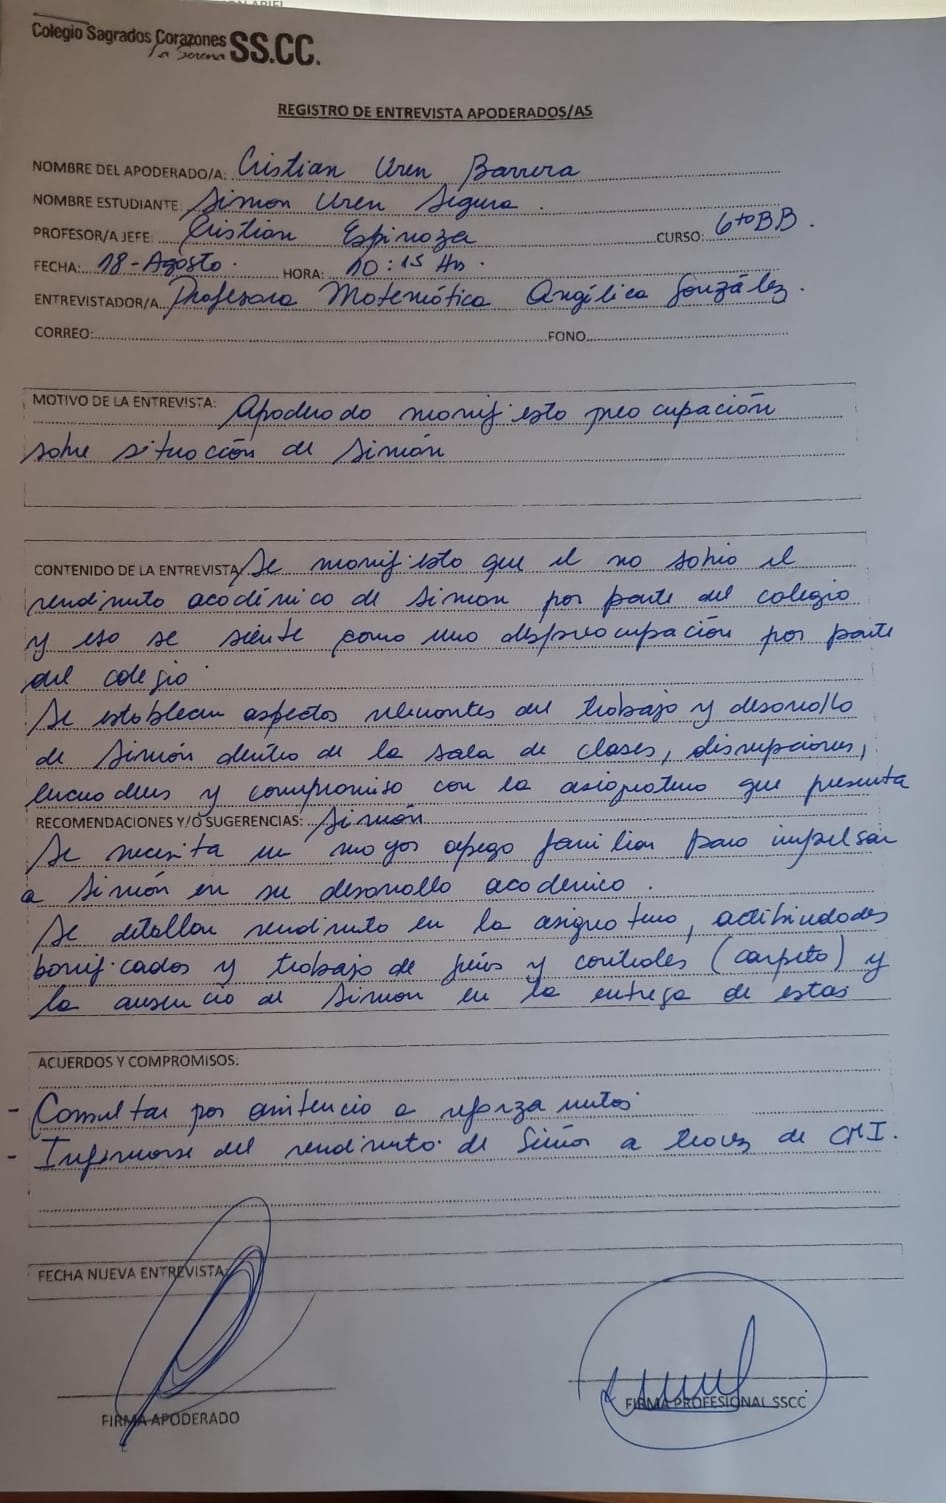 Colegio Sagrados Corazones SS.CC.
La Serena
REGISTRO DE ENTREVISTA APODERADOS/AS
NOMBRE DEL APODERADO/A: Cristian Uren Barrera
NOMBRE ESTUDIANTE: Simon Uren Segura.
PROFESOR/A JEFE: Cristian Espinoza CURSO: 6to BB.
FECHA: 18-Agosto. HORA: 10:15 Hs.
ENTREVISTADOR/A Profesora Matemática Angélica González.
CORREO: FONO
MOTIVO DE LA ENTREVISTA: Apoderado manifiesta preocupación
sobre situación de Simón
CONTENIDO DE LA ENTREVISTA Se manifiesta que el no sabia el
rendimiento académico de Simon por parte del colegio
y eso se siente como una despreocupación por parte
del colegio
Se establecen aspectos relevantes del trabajo y desarrollo
de Simón dentro de la sala de clases, disrupciones,
y compromiso con la asignatura que presenta
RECOMENDACIONES Y/O SUGERENCIAS: Simón
Se necesita un mayor apego familiar para impulsar
a Simón en su desarrollo académico.
Se detallan rendimiento en la asignatura, actibiudades
bonificados y trabajo de guias y controles (carpeta) y
la ausencia de Simon en la entrega de estas
ACUERDOS Y COMPROMISOS:
- Consultar por asistencia a reforzamientos
- Informarse del rendimiento de Simón a traves de CMI.
FECHA NUEVA ENTREVISTA:
FIRMA APODERADO
FIRMA PROFESIONAL SSCC